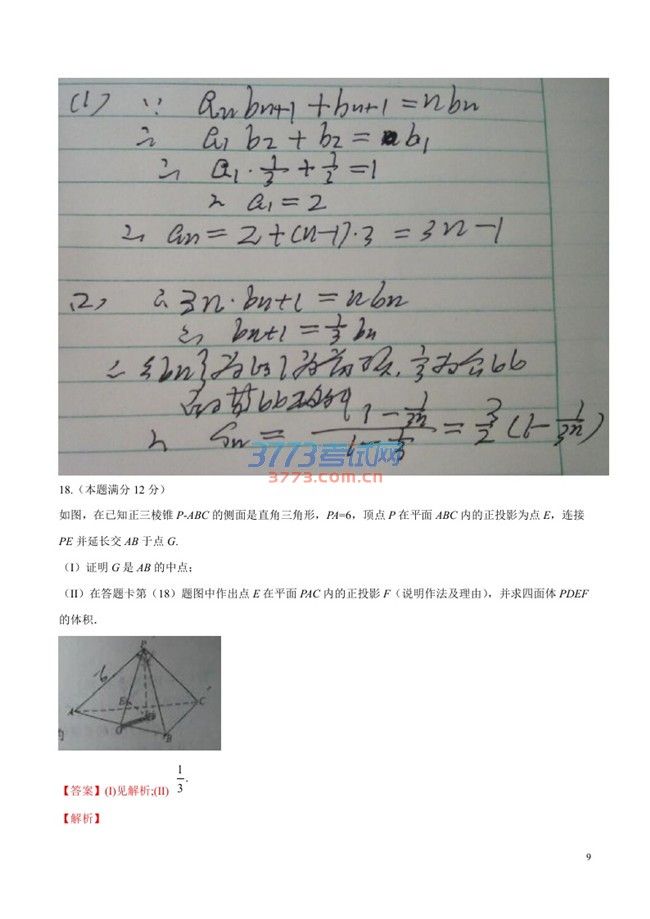 (1) ∵ anbn+1+bn+1=nbn
∴ a1b2+b2=b1
∴ a1·1/3+1/3=1
∴ a1=2
∴ an=2+(n-1)·3=3n-1
(2) ∴ 3n·bn+1=nbn
∴ bn+1=1/3bn
∴ {bn}为以1为首项,1/3为公比
的等比数列
∴ Sn=(1-1/3n)/(1-1/3)=3/2(1-1/3n)
3773考试网
3773.com.cn
18.（本题满分 12 分）
如图，在已知正三棱锥 P-ABC 的侧面是直角三角形，PA=6，顶点 P 在平面 ABC 内的正投影为点 E，连接
PE 并延长交 AB 于点 G.
（I）证明 G 是 AB 的中点；
（II）在答题卡第（18）题图中作出点 E 在平面 PAC 内的正投影 F（说明作法及理由），并求四面体 PDEF
的体积．
P
6
E
A
C
D
G
B
【答案】(I)见解析;(II) 1/3.
【解析】
9